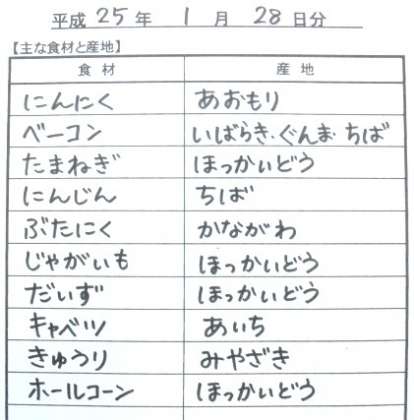 平成 25 年 1 月 28 日分
【主な食材と産地】
食材 産地
にんにく あおもり
ベーコン いばらき・ぐんま・ちば
たまねぎ ほっかいどう
にんじん ちば
ぶたにく かながわ
じゃがいも ほっかいどう
だいず ほっかいどう
キャベツ あいち
きゅうり みやざき
ホールコーン ほっかいどう